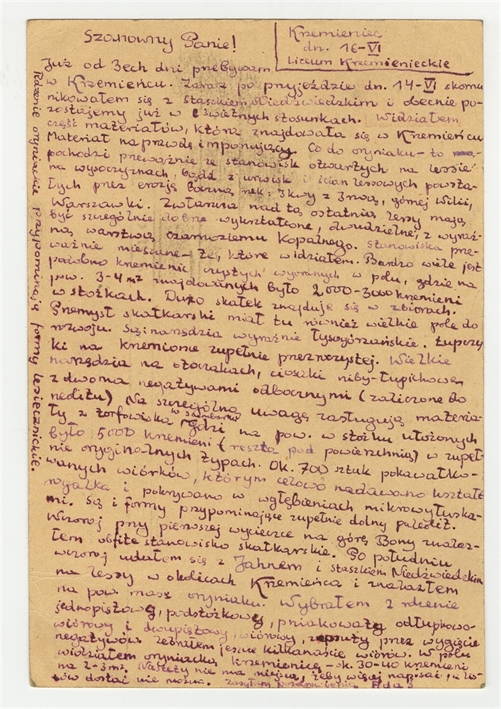 Szanowny Panie!
Krzemieniec
dn. 16-VI
Liceum Krzemienieckie
Już od 3ech dni przebywam
w Krzemieńcu. Zaraz po przyjeździe dn. 14-VI skomu
nikowałem się z Staszkiem Niedźwiedzkim i obecnie po-
zostajemy już w świetnych stosunkach. Widziałem
część materiałów, która znajdowała się w Krzemieńcu
Materiał naprawdę imponujący. Co do oryniaku - to
pochodzi przeważnie ze stanowisk otwartych na lessie
na wysoczyznach, bądź z urwisk i ścian lessowych powsta-
łych przez erozją górnej Wilii,
Warszawki. Zwłaszcza nad tą ostatnią lessy mają
być szczególnie dobrze wykształcone, dwudzielne, z wyraź-
ną warstwą czarnoziemu kopalnego. Stanowiska prze-
ważnie mieszane - te, które widziałem. Bardzo wiele jest
podobno krzemieni czystych wyoranych w polu, gdzie na
pow. 3-4 m² znajdowanych było 2000-3000 krzemieni
w stożkach. Dużo skałek znajduje się w zbiorach.
Przemysł skałkarski miał tu również wielkie pole do
rozwoju. Są i narzędzia wyraźnie tysogórzańskie. Łupczy
ki na krzemionce zupełnie przezroczystej. Wielkie
narzędzia na otoczakach, ciosaki niby-łupickowe
z dwoma negatywami odbocznymi (zaliczone do
neolitu) Na szczególną uwagę zasługują materia-
ły z torfowiska gdzie na pow. w stożku ułożonych
było 5000 krzemieni (reszta pod powierzchnią) w zupeł-
nie oryginalnych typach. Ok. 700 sztuk pokawałko-
wanych wiórków, którym celowo nadawano kształt
rogalka i pokrywano w wgłębieniach mikrowyłuska-
mi. Są i formy przypominające zupełnie dolny paleolit.
Wczoraj przy pierwszej wycieczce na górę Bony znalaz-
łem obfite stanowisko skałkarskie. Po południu
wczoraj udałem się z Jahnem i Staszkiem Niedźwiedzkim
na lessy w okolicach Krzemieńca i znalazłem
na pow. masę oryniaku. Wybrałem z rdzenie
jednopiętową, podstożkową, pniakowatą odłupkowo-
wiórową i dwupiętową, wiórową, zepsuty przez wygięcie
negatywów. Zebrałem jeszcze kilkanaście wiórów. W polu
widziałem oryniacką krzemienicę - ok. 30-40 krzemieni
na 2-3 m². Niestety nie ma miejsca, żeby więcej napisać, a
dostać nie można.
Rdzenie oryniackie przypominają formy lesiecznickie.